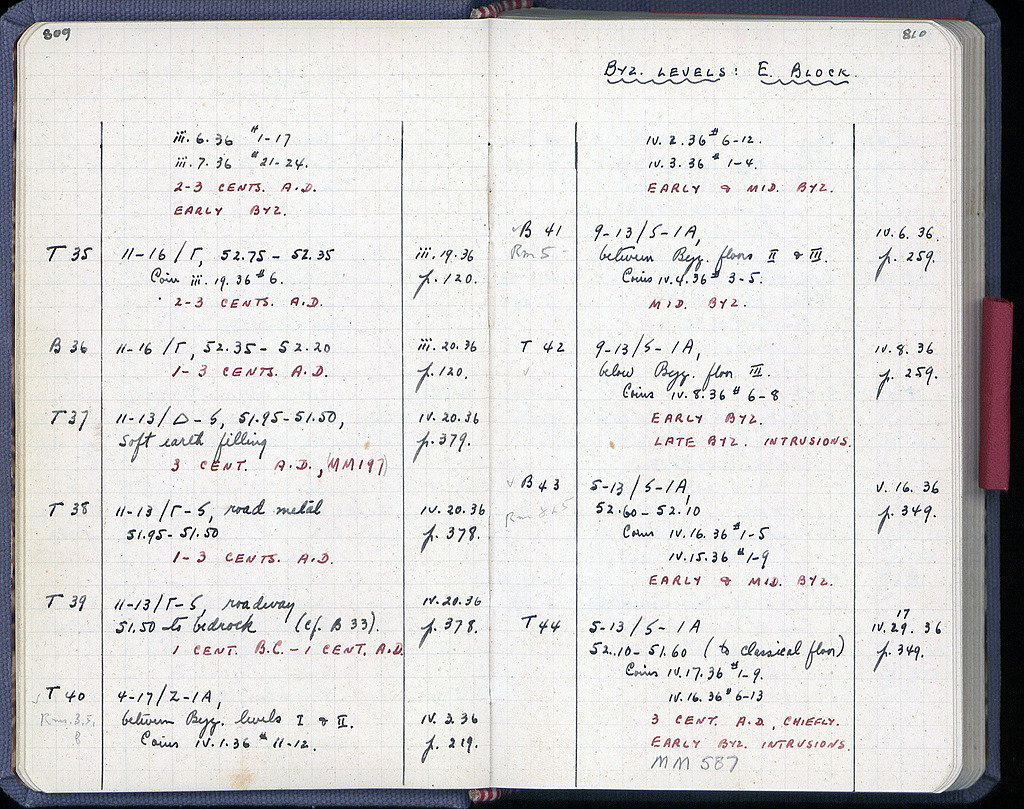 809
iii.6.36 #1-17
iii.7.36 #21-24.
2-3 CENTS. A.D.
EARLY BYZ.
T 35 11-16/Γ, 52.75 - 52.35 iii.19.36
Coin iii.19.36 #6. p.120.
2-3 CENTS. A.D.
B 36 11-16/Γ, 52.35 - 52.20 iii.20.36
1-3 CENTS. A.D. p.120.
T 37 11-13/Δ-S, 51.95-51.50, iv.20.36
soft earth filling p.379.
3 CENT. A.D., (MM197)
T 38 11-13/Γ-S, road metal iv.20.36
51.95-51.50 p.378.
1-3 CENTS. A.D.
T 39 11-13/Γ-S, roadway iv.20.36
51.50 to bedrock (cf. B 33). p.378.
1 CENT. B.C.-1 CENT. A.D.
T 40 4-17/Z-1A,
Rms. 3.5, between Byz. levels I & II. iv.2.36
8 Coins iv.1.36 #11-12. p.219.
810
BYZ. LEVELS: E. BLOCK.
iv.2.36 #6-12.
iv.3.36 #1-4.
EARLY & MID. BYZ.
B 41 9-13/S-1A, iv.6.36.
Rm. 5 between Byz. floors II & III. p.259.
Coins iv.4.36 #3-5.
MID. BYZ.
T 42 9-13/S-1A, iv.8.36
below Byz. floor III. p.259.
Coins iv.8.36 #6-8
EARLY BYZ.
LATE BYZ. INTRUSIONS.
B 43 5-13/S-1A, v.16.36
52.60-52.10 p.349.
Coins iv.16.36 #1-5
iv.15.36 #1-9
EARLY & MID. BYZ.
17
T 44 5-13/S-1A iv.29.36
52.10-51.60 (to classical floor) p.349.
Coins iv.17.36 #1-9.
iv.16.36 #6-13
3 CENT. A.D., CHIEFLY.
EARLY BYZ. INTRUSIONS.
MM 587